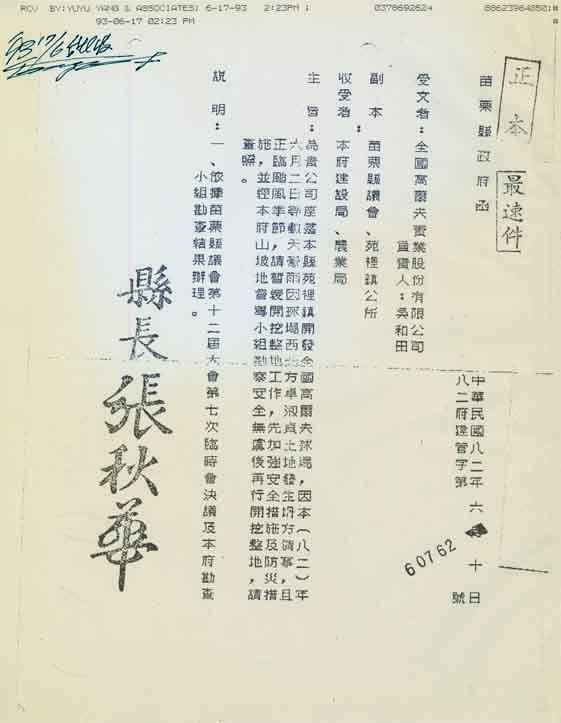 RCV BY:YUYU YANG & ASSOCIATES; 6-17-93 2:23PM ; 0378692624 88623964050;#
93-06-17 02:23 PM
正本
最速件
苗栗縣政府函
中華民國八二年六月十日
八二府建管字第60762號
受文者：全國高爾夫實業股份有限公司
負責人：吳和田
副本：苗栗縣議會、苑裡鎮公所
收受者：本府建設局、農業局
主旨：為貴公司座落本縣苑裡鎮開發全國高爾夫球場，因本（八二）年
六月二日尋獻天豪雨因球場西北方卓淑貞土地發生坍方情事，且
正臨颱風季節，請暫緩開挖整地工作，先加強安全措施及防災措
施，並經本府山坡地督導小組勘察安全無虞後再行開挖整地，請
查照。
說明：一、依據苗栗縣議會第十二屆大會第七次臨時會決議及本府勘查
小組勘查結果辦理。
縣長張秋華